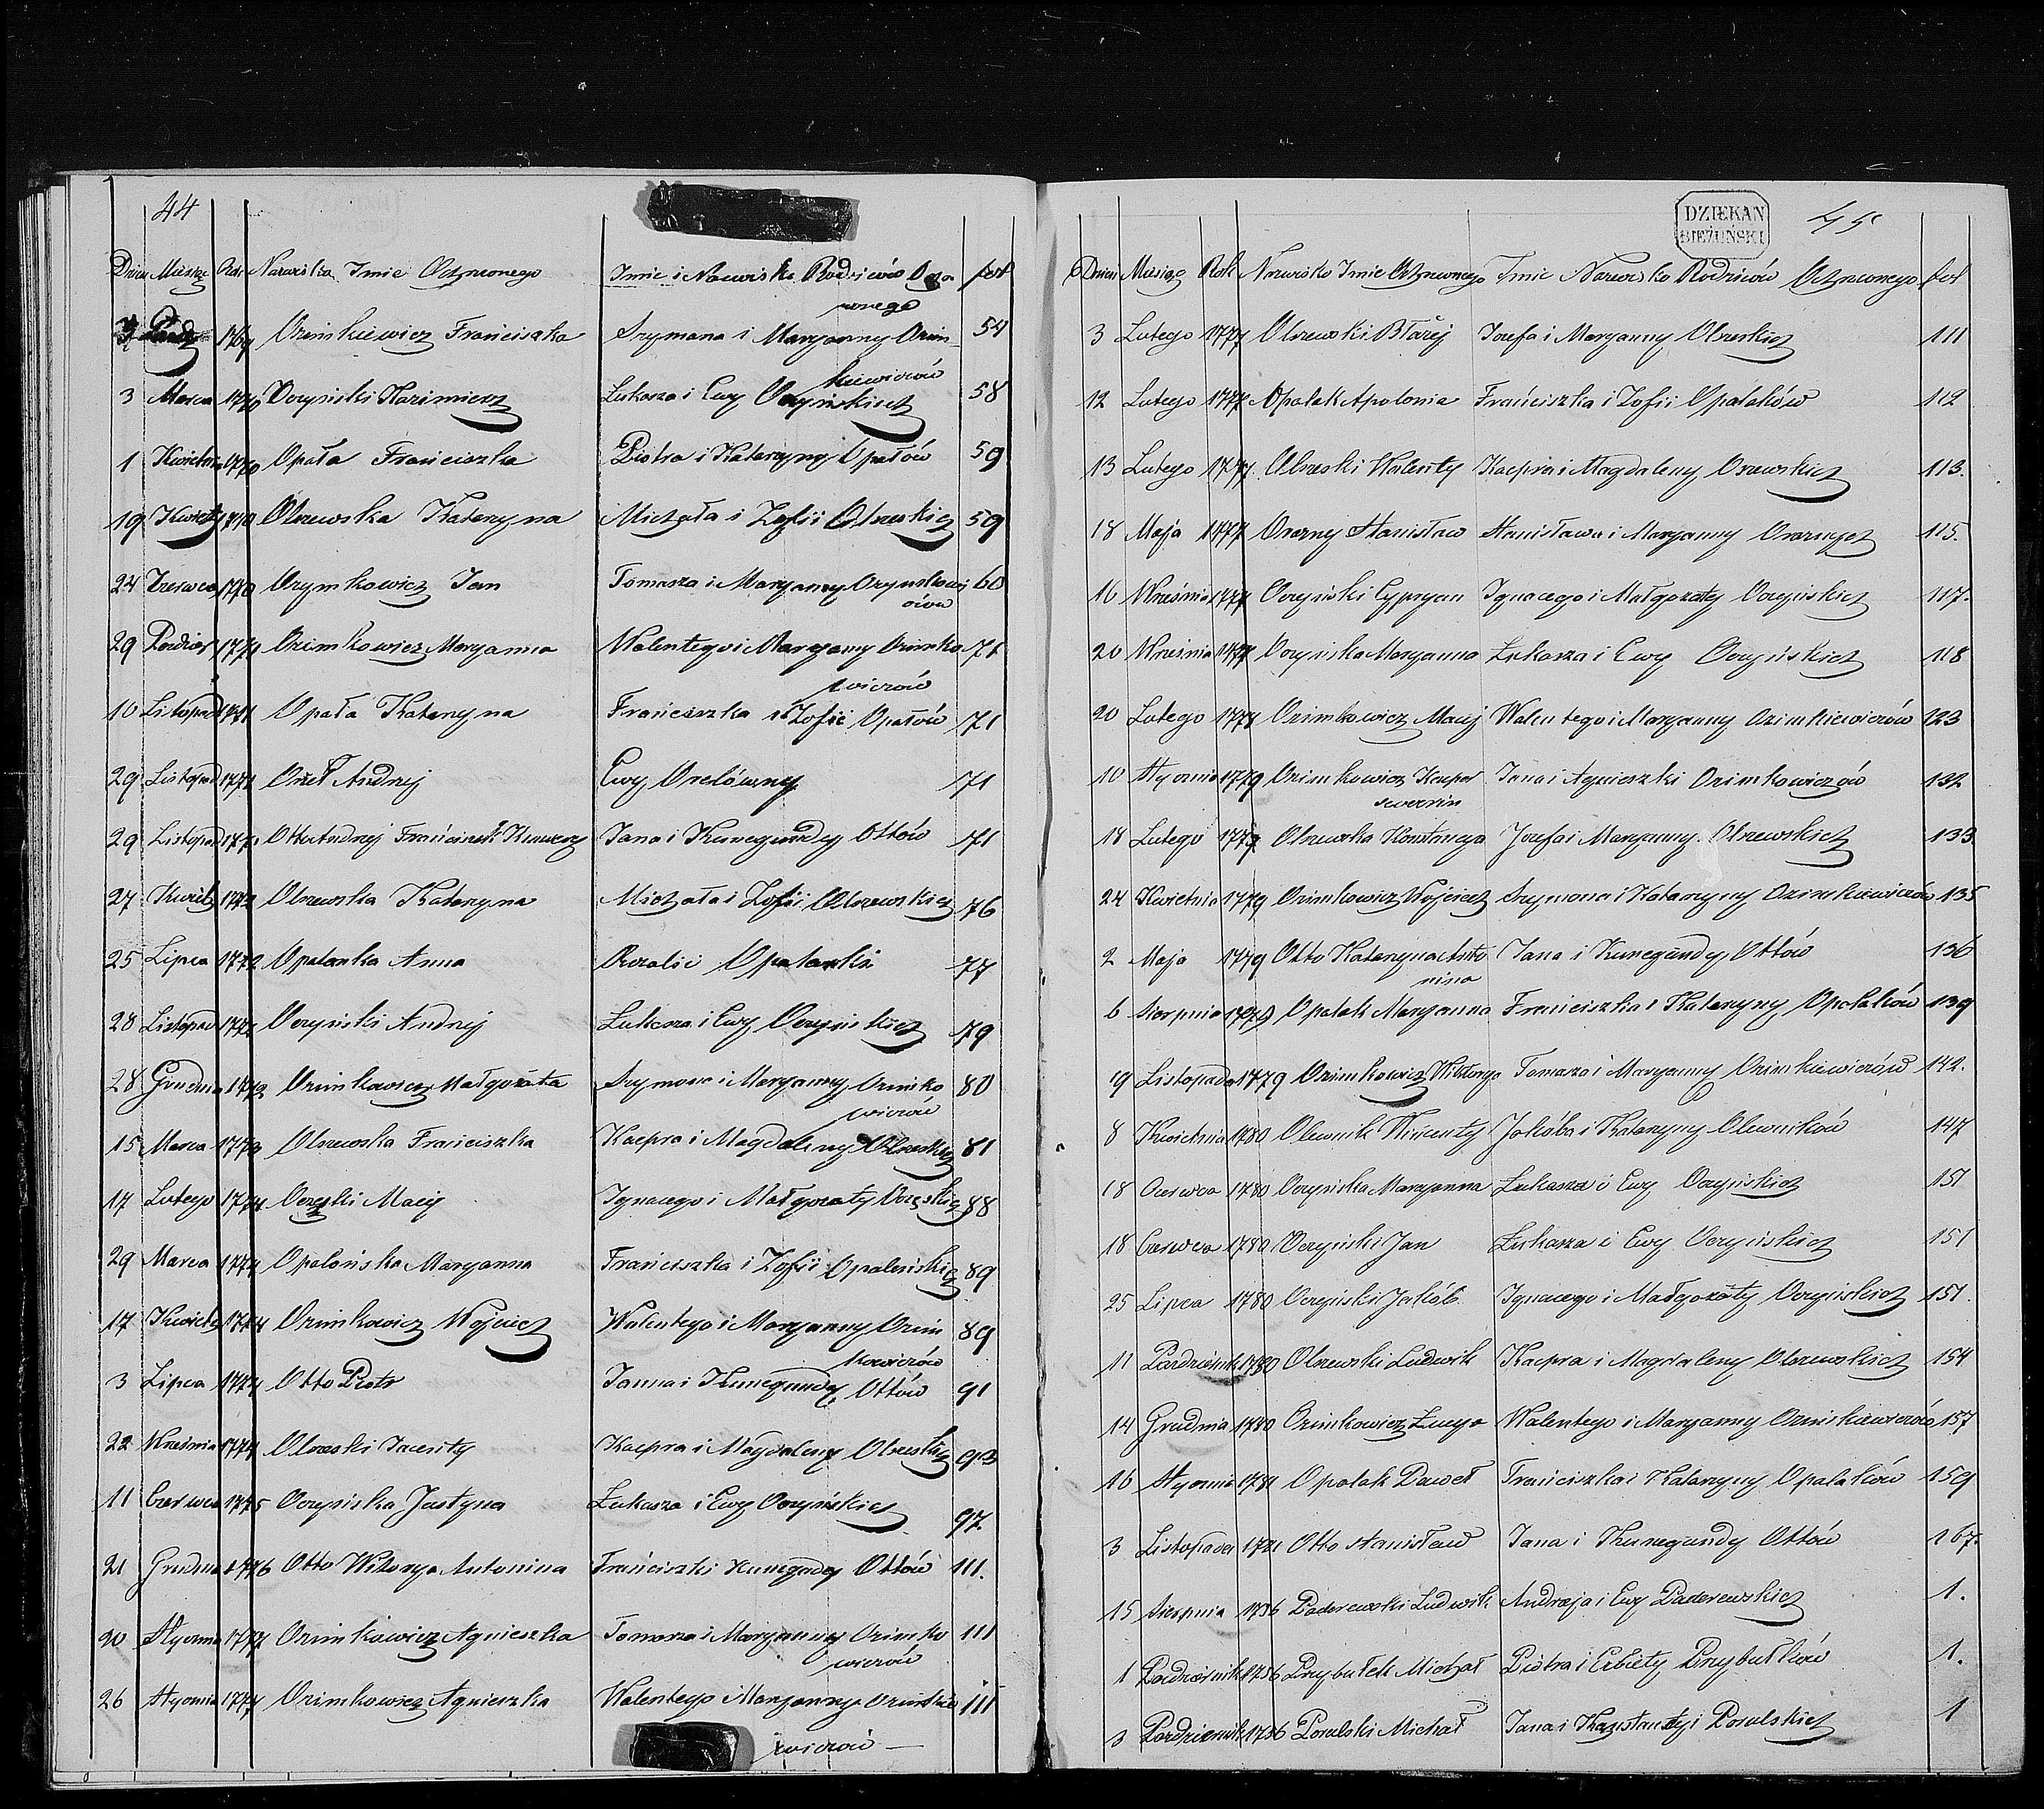 44
Dzień Miesiąc Rok Nazwiska Imie Ochrzconego Imie i Nazwisko Rodziców Ochrz fol
conego
1769 Ozimkiewicz Franciszka Szymona i Maryanny Ozim 54
kiewiczów
3 Marca 1770 Oczyński Kazimierz Łukasza i Ewy Oczyńskich 58
1 Kwietnia 1770 Opała Franciszka Piotra i Katarzyny Opałów 59
19 Kwietn 1770 Olszewska Katarzyna Michała i Zofii Olszeskich 59
24 Czerwca 1770 Ozymkowicz Jan Tomasza i Maryanny Ozymkowi 60
czów
29 Paźdier 1771 Ozimkowicz Maryanna Walentego i Maryanny Ozimko 71
wiczów
10 Listopad 1771 Opała Katarzyna Franciszka i Zofii Opałów 71
29 Listopad 1771 Orzeł Andrzej Ewy Orelówny 71
29 Listopad 1771 Otto Andrzej Franciszek Jana i Kunegundy Ottów 71
27 Kwiet 1772 Olszewska Katarzyna Michała i Zofii Olszewskich 76
25 Lipca 1772 Opalanka Anna Rozalii Opalanki 77
28 Listopad 1772 Oczyński Andrzej Łukasza i Ewy Oczyńskich 79
28 Grudnia 1772 Ozimkowicz Małgorzata Szymona i Maryanny Ozimko 80
wiczów
15 Marca 1773 Olszewska Franciszka Kacpra i Magdaleny Olszeskich 81
17 Lutego 1774 Oczeski Maciy Ignacego i Małgorzaty Oczeskich 88
29 Marca 1774 Opalońska Maryanna Franciszka i Zofii Opaleńskich 89
17 Kwietn 1774 Ozimkowicz Wojciech Walentego i Maryanny Ozim 89
kowiczów
3 Lipca 1774 Otto Piotr Janna i Kunegundy Ottów 91
22 Wreśnia 1774 Olszeski Jacenty Kacpra i Magdaleny Olszeskich 93
11 Czerwca 1775 Oczyńska Justyna Łukasza i Ewy Oczyńskich 97
21 Grudnia 1776 Otto Wiktorya Antonina Franciszki Kunegundy Ottów 111.
20 Stycznia 1777 Ozimkowicz Agnieszka Tomasza i Maryanny Ozimko 111
wiczów
26 Stycznia 1777 Ozimkowicz Agnieszka Walentego i Maryanny Ozimkie 111
wiczów
DZIEKAN
BIEŻUŃSKI
45
Dzień Miesiąc Rok Nazwisko Imie Ochrzconego Imie Nazwisko Rodziców Ochrzconego fol
3 Lutego 1777 Olszewski Błażej Jozefa i Maryanny Olszeskich 111
12 Lutego 1777 Opalak Apolonia Franciszka i Zofii Opalaków 112
13 Lutego 1777 Olszeski Walenty Kacpra i Magdaleny Oszewskich 113.
18 Maja 1777 Stanisław Stanisława i Maryanny 115.
16 Wreśnia 1777 Oczyński Cypryan Ignacego i Małgorzaty Oczyńskich 117.
20 Wreśnia 1777 Oczyńska Maryanna Łukasza i Ewy Oczyńskich 118
20 Lutego 1778 Ozimkowicz Maciej Walentego i Maryanny Ozimkiewiczów 123
10 Stycznia 1779 Ozimkowicz Kacper Jana i Agnieszki Ozimkowiczów 132
Sewerin
18 Lutego 1779 Olszewska Konstancya Jozefa i Maryanny Olszewskich 133
24 Kwietnia 1779 Ozimkowicz Wojciech Szymona i Katarzyny Ozimkiewiczów 135
2 Maja 1779 Otto Katarzyna Anto Jana i Kunegundy Ottów 136
nina
6 Sierpnia 1779 Opalak Maryanna Franciszka i Katarzyny Opalaków 139
9 Listopada 1779 Ozimkowicz Wiktorya Tomasza i Maryanny Ozimkiewiczów 142.
8 Kwietnia 1780 Olewnik Wincenty Jakóba i Katarzyny Olewników 147
18 Czerwca 1780 Oczyńska Maryanna Łukasza i Ewy Oczyńskich 151
18 Czerwca 1780 Oczyński Jan Łukasza i Ewy Oczyńskich 151
25 Lipca 1780 Oczyński Jakób Ignacego i Małgorzaty Oczyńskich 151.
11 Pazdziernik 1780 Olszewski Ludwik Kacpra i Magdaleny Olszewskich 154
14 Grudnia 1780 Ozimkowicz Łucya Walentego i Maryanny Ozimkiewiczów 157
16 Stycznia 1781 Opalak Paweł Franciszka i Katarzyny Opalaków 159
3 Listopada 1781 Otto Stanisław Jana i Kunegundy Ottów 167.
15 Sierpnia 1756 Paderewski Ludwik Andrzeja i Ewy Paderewskich 1.
1 Pazdziernik 1756 Przybułek Michał Piotra i Elbiety Przybułków 1.
3 Pazdziernik 1756 Posulski Michał Jana i Konstancyi Posulskich 1